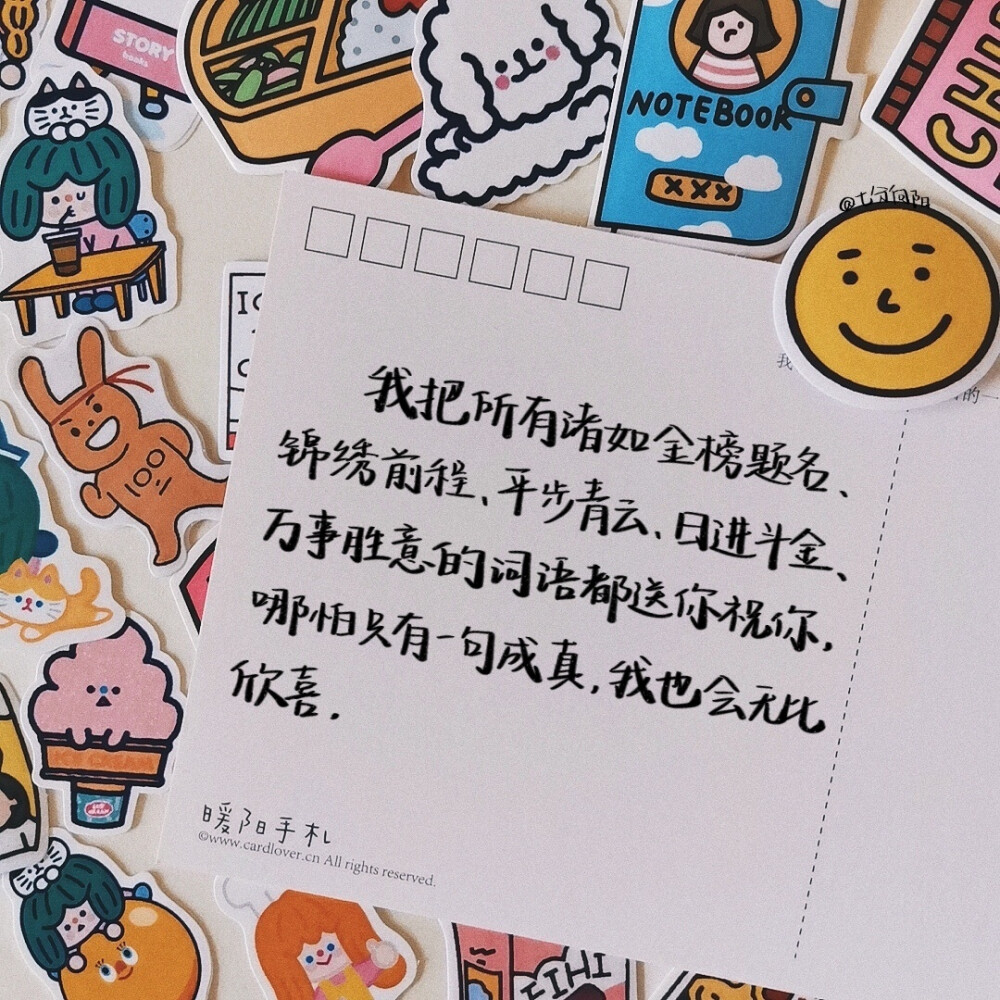 STORY
books
NOTEBOOK
XXX
@七分向阳
我把所有诸如金榜题名、
锦绣前程、平步青云、日进斗金、
万事胜意的词语都送你祝你,
哪怕只有一句成真,我也会无比
欣喜.
ICE CREAM
暖阳手札
©www.cardlover.cn All rights reserved.